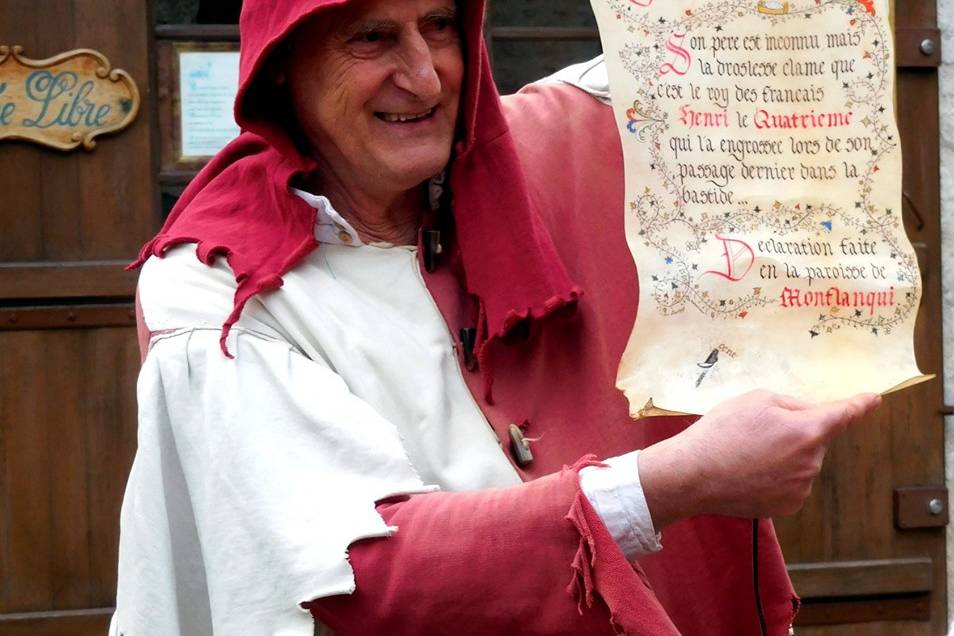 e Libre
Son pere est inconnu mais
la droslesse clame que
c'est le roy des francais
Henri le Quatrieme
qui l'a engrossee lors de son
passage dernier dans la
bastide...
Declaration faite
en la paroisse de
Monflanqui